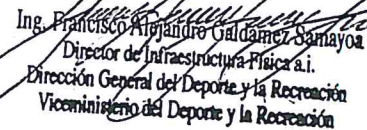 Ing. Francisco Alejandro Galdamez Samayoa
Director de Infraestructura Física a.i.
Dirección General del Deporte y la Recreación
Viceministerio del Deporte y la Recreación